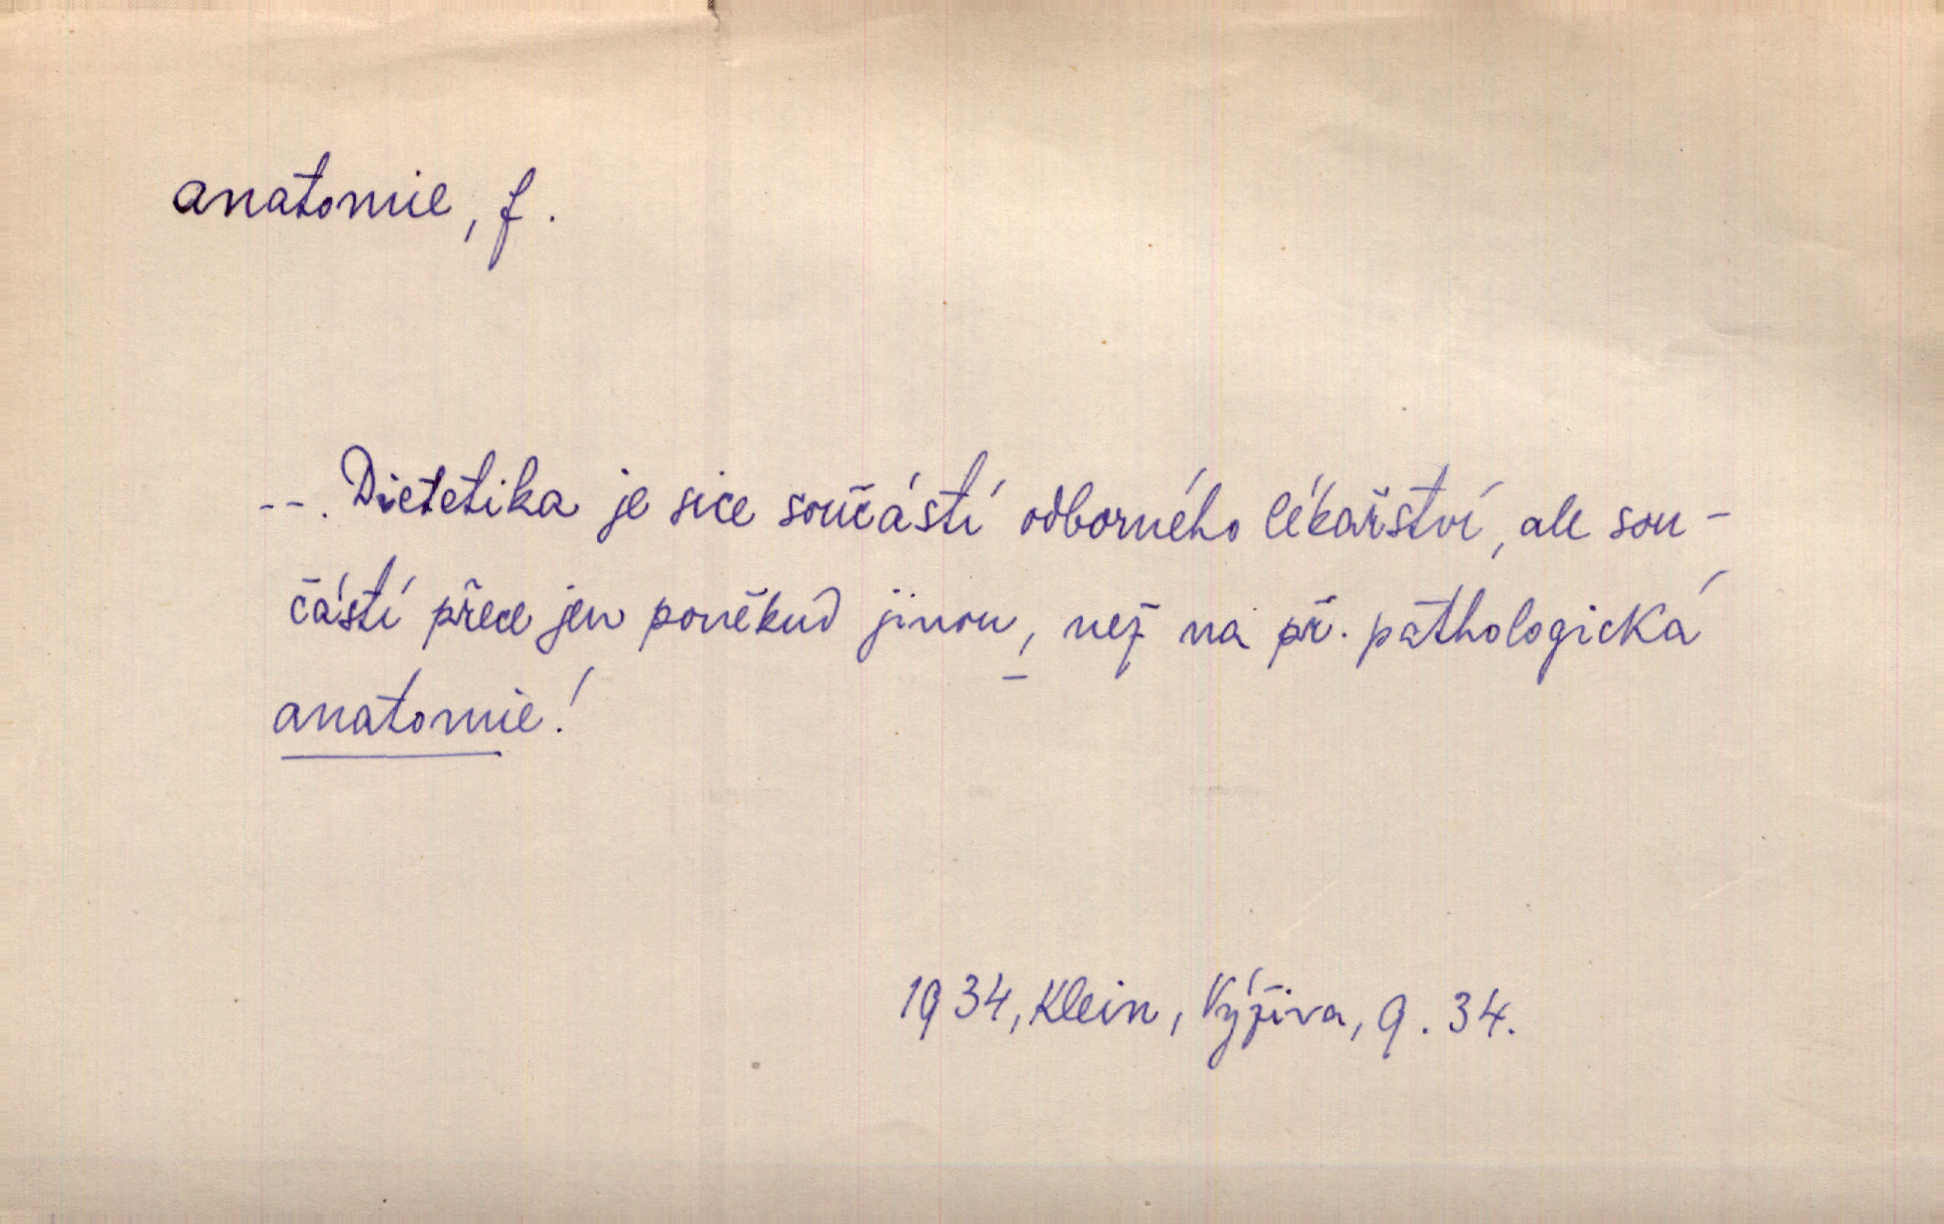 anatomie, f.
--. Dietetika je sice součástí odborného lékařství, ale sou-
částí přece jen poněkud jinou, než na př. pathologická
anatomie!
1934, Klein, Výživa, 9. 34.